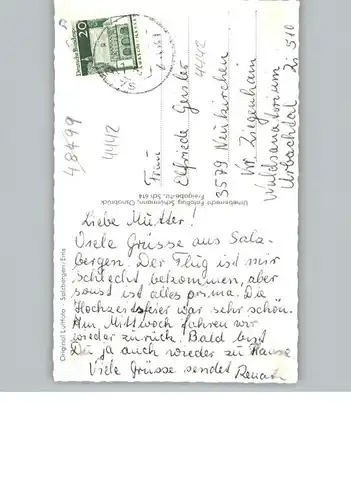 Liebe Mutter!
Viele Grüsse aus Salz-
bergen. Der Flug ist mir
schlecht bekommen, aber
sonst ist alles prima. Die
Hochzeitsfeier war sehr schön.
Am Mittwoch fahren wir
wieder zurück. Bald bist
Du ja auch wieder zu Hause
Viele Grüsse sendet Renate
Frau
Elfriede Geisler
3579 Neukirchen
Kr. Ziegenhain
Waldsanatorium
Urbachtal Zi 510
Deutsche Bundespost
20
48499
4442
4442
Original Luftfoto · Salzbergen/Ems
Urheberrecht Fotoflug Schürmann, Osnabrück
Freigabe-Nr. Sch 614